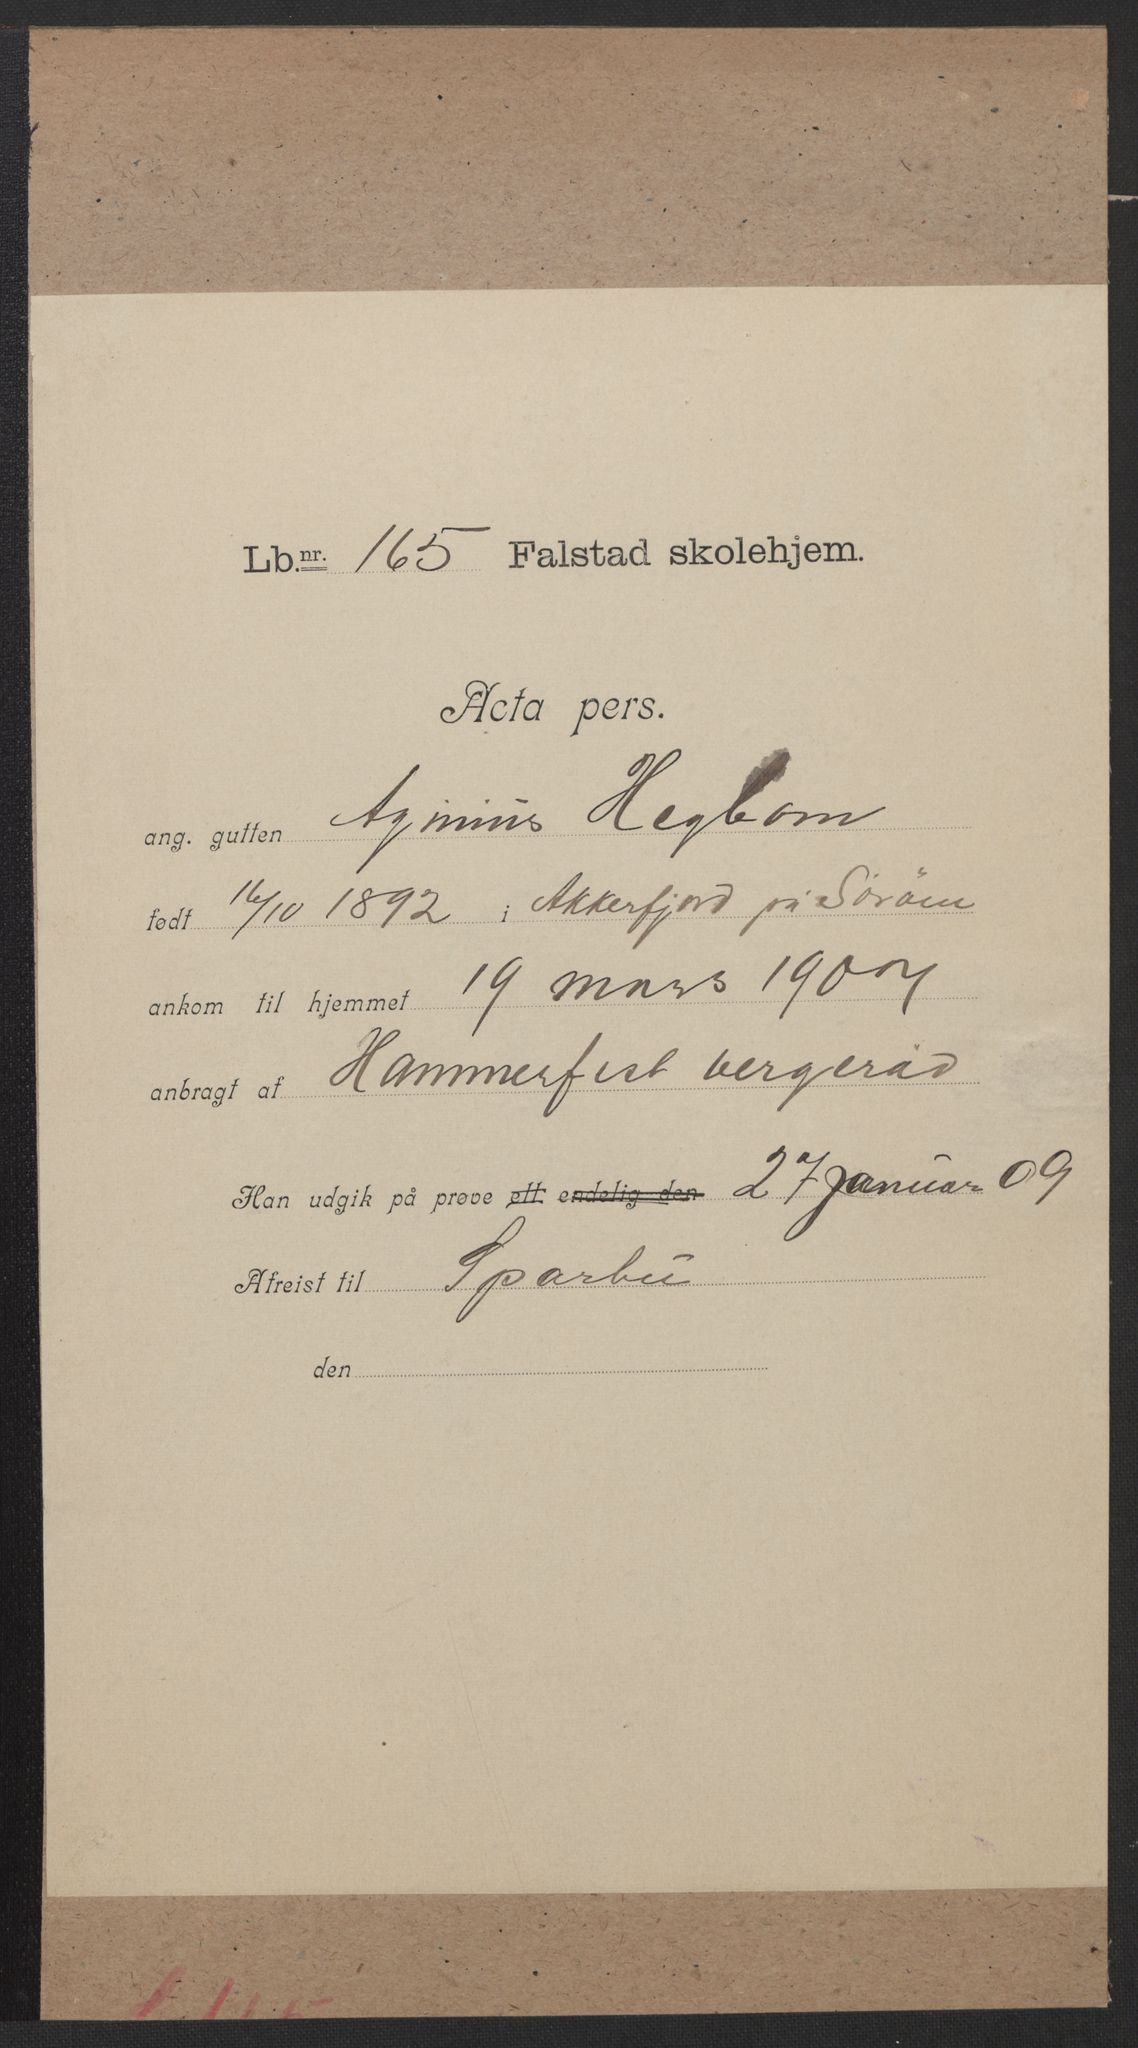 Lb.nr. 165 Falstad skolehjem.
Acta pers.
ang. gutten Aginius Hegbom
født 16/10 1892 i Akkerfjord på Söröen
ankom til hjemmet 19 mars 1907
anbragt af Hammerfest vergeråd
Han udgik på prøve ett. endelig den 27 januar 09
Afreist til Sparbu
den